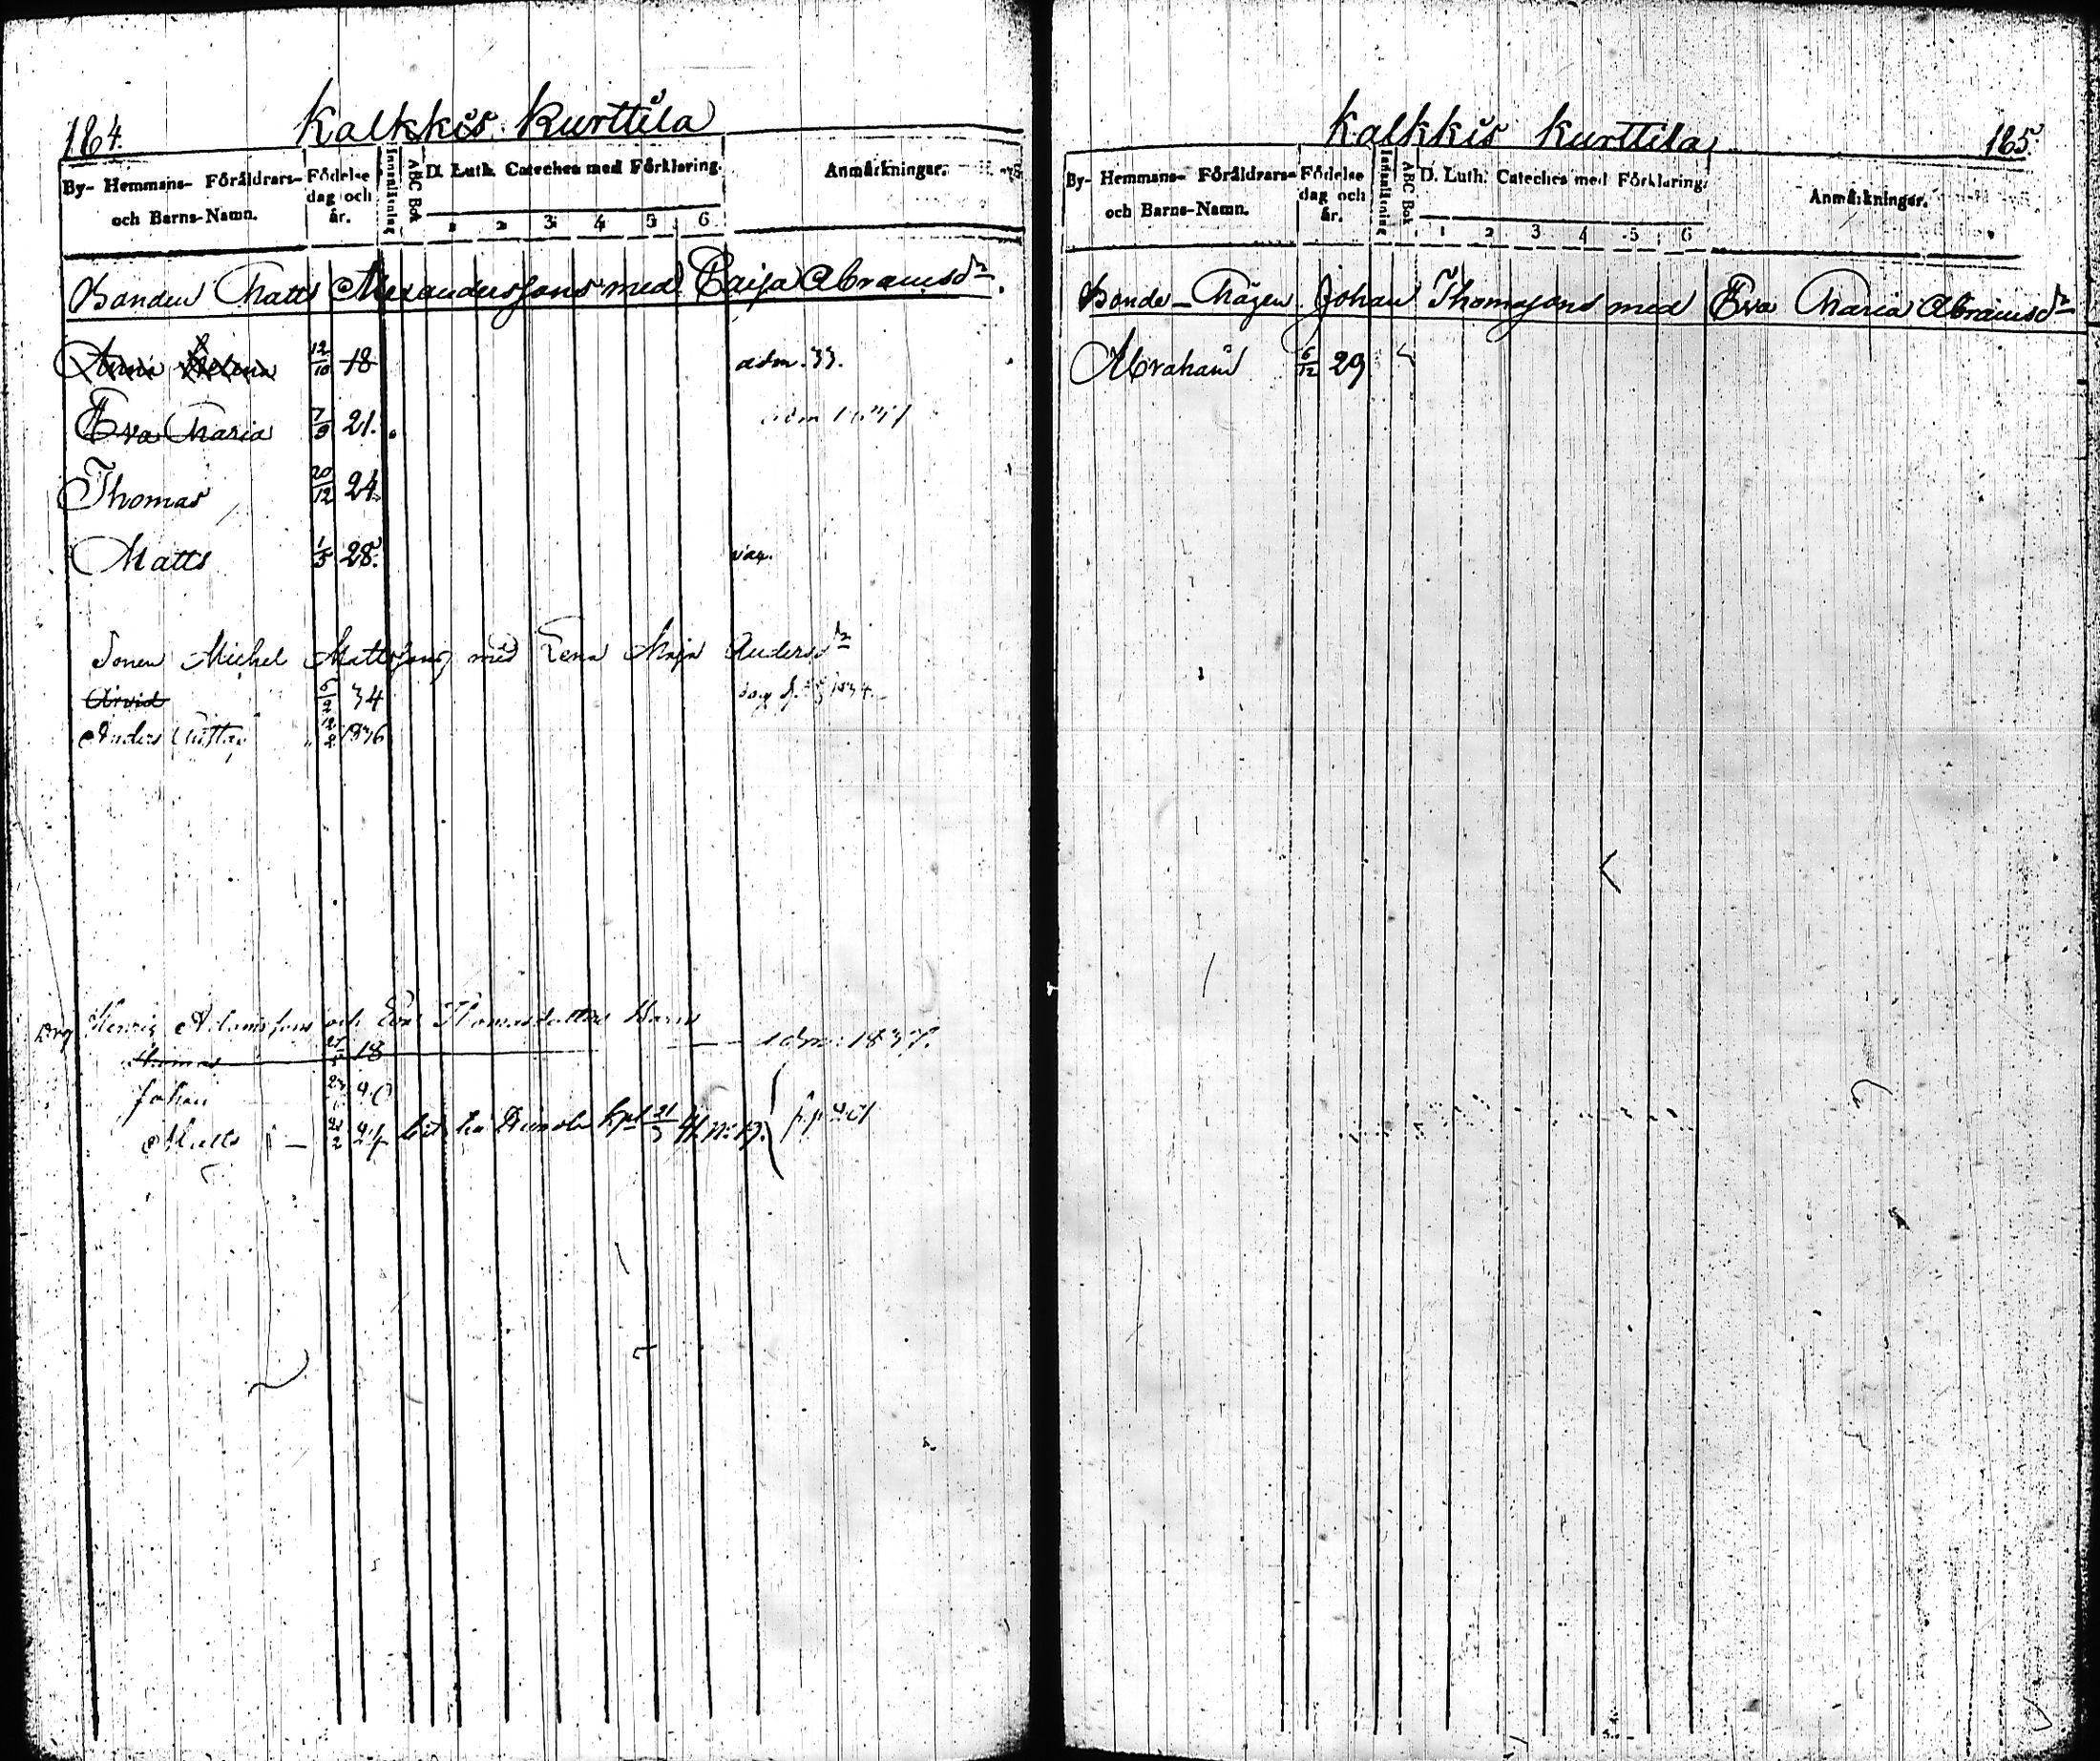 164. Kalkkis Kurttila
By- Hemmans- Föräldrars- och Barns-Namn. Födelse dag och år. Innanläsning ABC Bok D. Luth. Cateches med Förklaring. 1 2 3 4 5 6 Anmärkningar.
Bonden Matts Alexanderssons med Caisa Abramsdr.
Anna Helena 12/10 18 adm. 33.
Eva Maria 7/9 21. adm 1837
Thomas 20/12 24.
Matts 1/5 28. vac.
Sonen Michel Mattssons med Lena Maja Andersdr
Arvid 6/2 34 1834.
Anders Gustaf 12/2 1836
Henric Adamssons och Eva Thomasdotters Barn
Thomas 18 adm: 1837.
Johan
Matts 21/2 24
Kalkkis Kurttila 165.
By- Hemmans- Föräldrars- och Barns-Namn. Födelse dag och år. Innanläsning ABC Bok D. Luth. Cateches med Förklaring. 1 2 3 4 5 6 Anmärkningar.
Bonde-Mågen Johan Thomassons med Eva Maria Abramsdr
Abraham 6/12 29